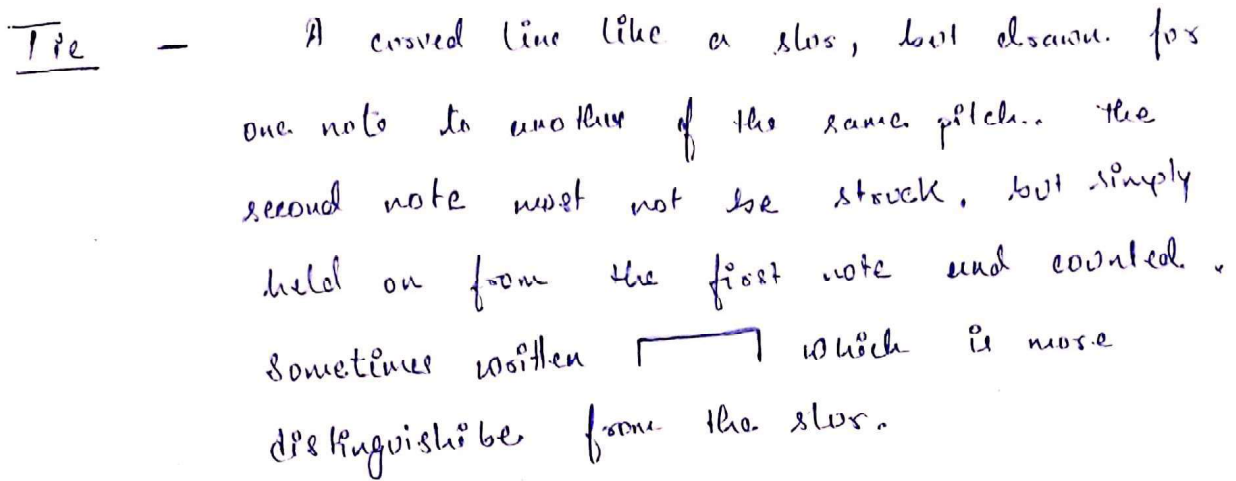 Tie - A curved line like a slur, but drawn for
one note to another of the same pitch.. the
second note must not be struck, but simply
held on from the first note and counted.
Sometimes written which is more
distinguishibe from the slur.